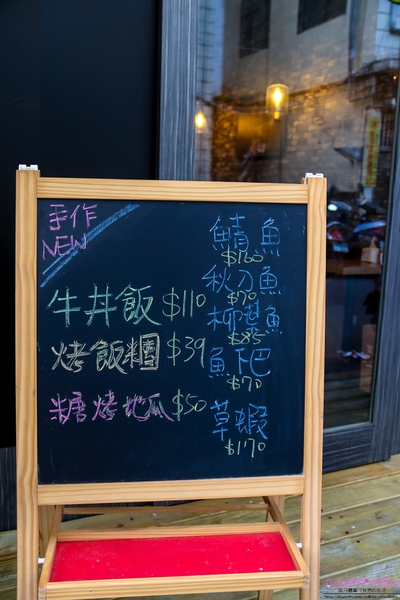 手作
NEW
牛丼飯 $110
烤飯糰 $39
糖烤地瓜 $50
鯖魚
$160
秋刀魚
$70
柳葉魚
$85
魚肥
$70
草蝦
$170